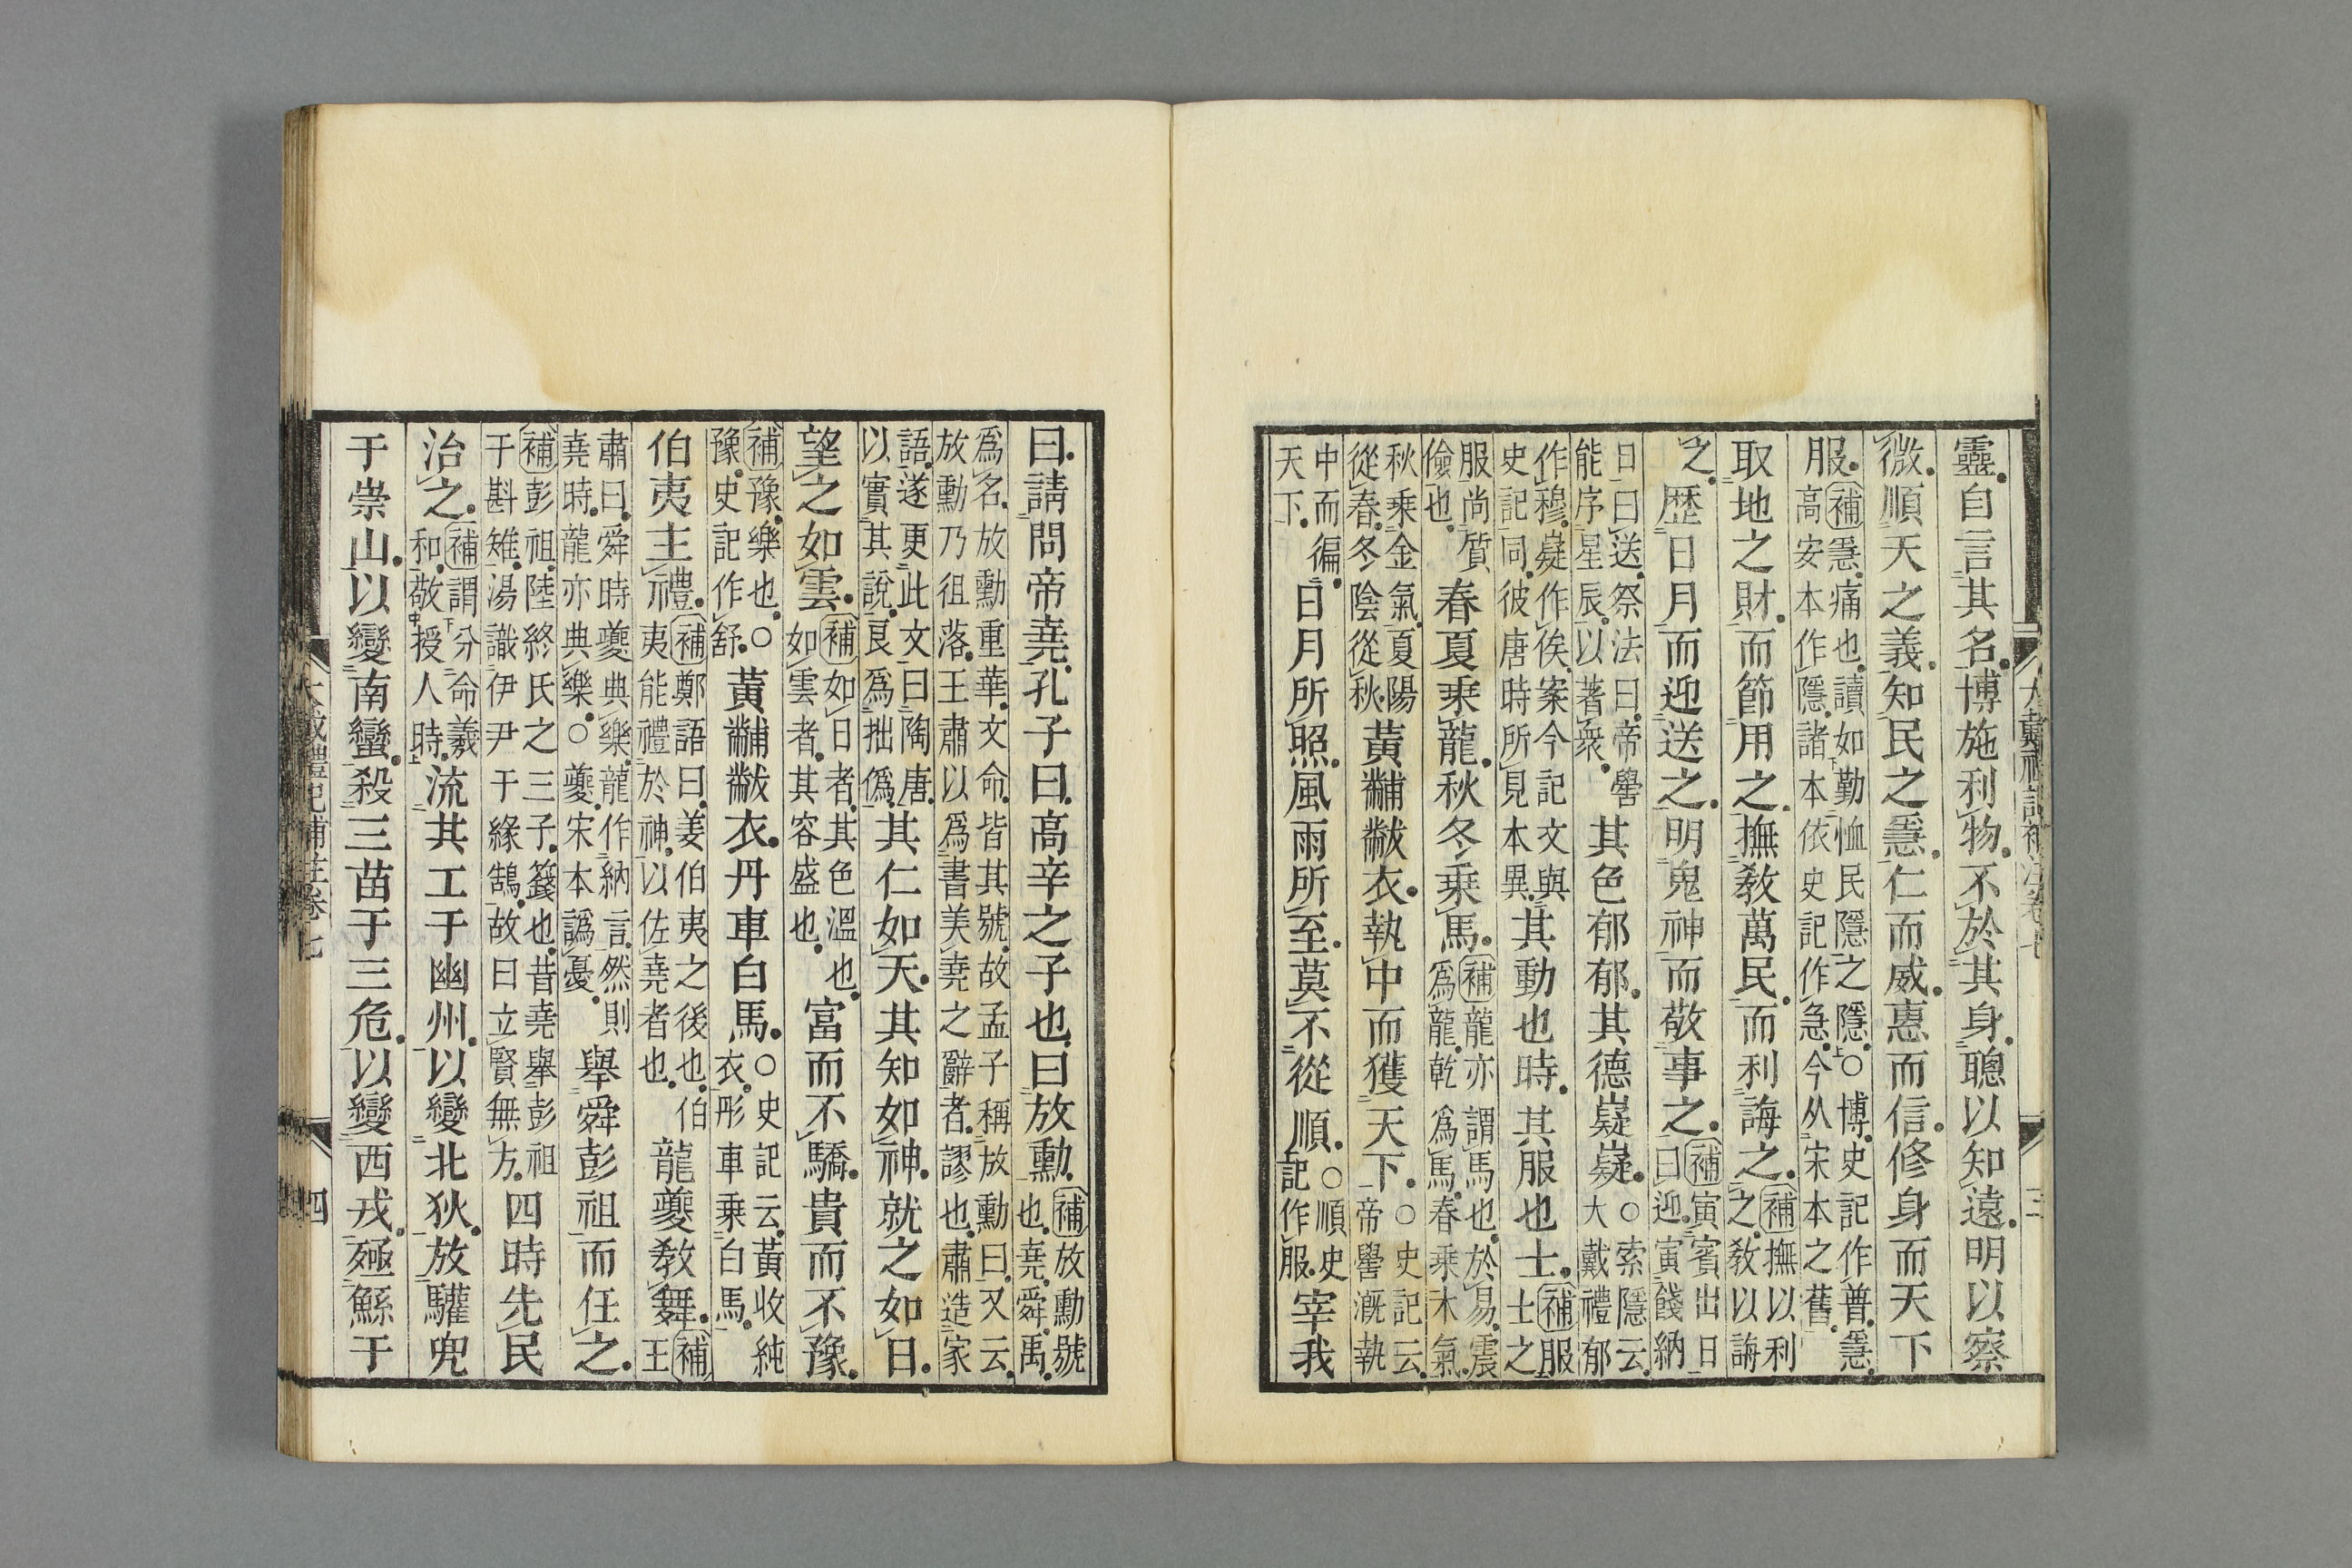 靈。自言其名。博施利物。不於其身。聰以知遠。明以察
微。順天之義。知民之㥯。仁而威。惠而信。修身而天下
服。補㥯。痛也。讀如勤恤民隱之隱。○博。史記作普。㥯。
高安本作隱。諸本依史記作急。今从宋本之舊。
取地之財。而節用之。撫敎萬民。而利誨之。補撫以利
之。敎以誨
之。歷日月而迎送之。明鬼神而敬事之。補寅賓出日
曰迎。寅餞納
日曰送。祭法曰。帝嚳
能序星辰。以著衆。
其色郁郁。其德嶷嶷。○索隱云。
大戴禮郁
作穆。嶷作俟。案今記文與
史記同。彼唐時所見本異。
其動也時。其服也士。補服
士之
服。尚質
儉也。
春夏乘龍。秋冬乘馬。補龍亦謂馬也。於易。震
爲龍。乾爲馬。春乘木氣。
秋乘金氣。夏陽
從春。冬陰從秋。
黃黼黻衣。執中而獲天下。○史記云。
帝嚳漑執
中而徧
天下。
日月所照。風雨所至。莫不從順。○順史
記作服。
宰我
大戴禮記補注卷七
三
曰。請問帝堯。孔子曰。高辛之子也。曰放勳。補放勳號
也。堯。舜。禹。
爲名。放勳重華。文命。皆其號。故孟子稱放勳曰。又云。
放勳乃徂落。王肅以爲書美堯之辭者。謬也。肅造家
語。遂更此文。曰陶唐。
以實其說。良爲拙僞。
其仁如天。其知如神。就之如日。
望之如雲。補如日者。其色溫也。
如雲者。其容盛也。
富而不驕。貴而不豫。
補豫。樂也。○
豫。史記作舒。
黃黼黻衣。丹車白馬。○史記云。黃收純
衣。彤車乘白馬。
伯夷主禮。補鄭語曰。姜伯夷之後也。伯
夷能禮於神。以佐堯者也。
龍夔敎舞。補
王
肅曰。舜時夔典樂。龍作納言。然則
堯時。龍亦典樂。○夔。宋本譌憂。
舉舜彭祖而任之。
補彭祖。陸終氏之三子。籛也。昔堯舉彭祖
于斟雉。湯識伊尹于緣鵠。故曰立賢無方。
四時先民
治之。補謂分命羲
和。敬授人時。
流共工于幽州。以變北狄。放驩兜
于崇山。以變南蠻。殺三苗于三危。以變西戎。殛鯀于
大戴禮記補注卷七
四